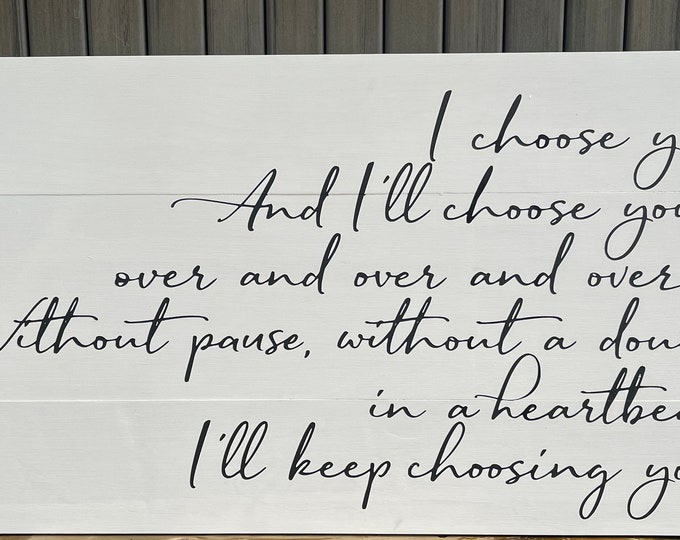 I choose y
And I'll choose you
over and over and over
Without pause, without a dou
in a heartbea
I'll keep choosing yo